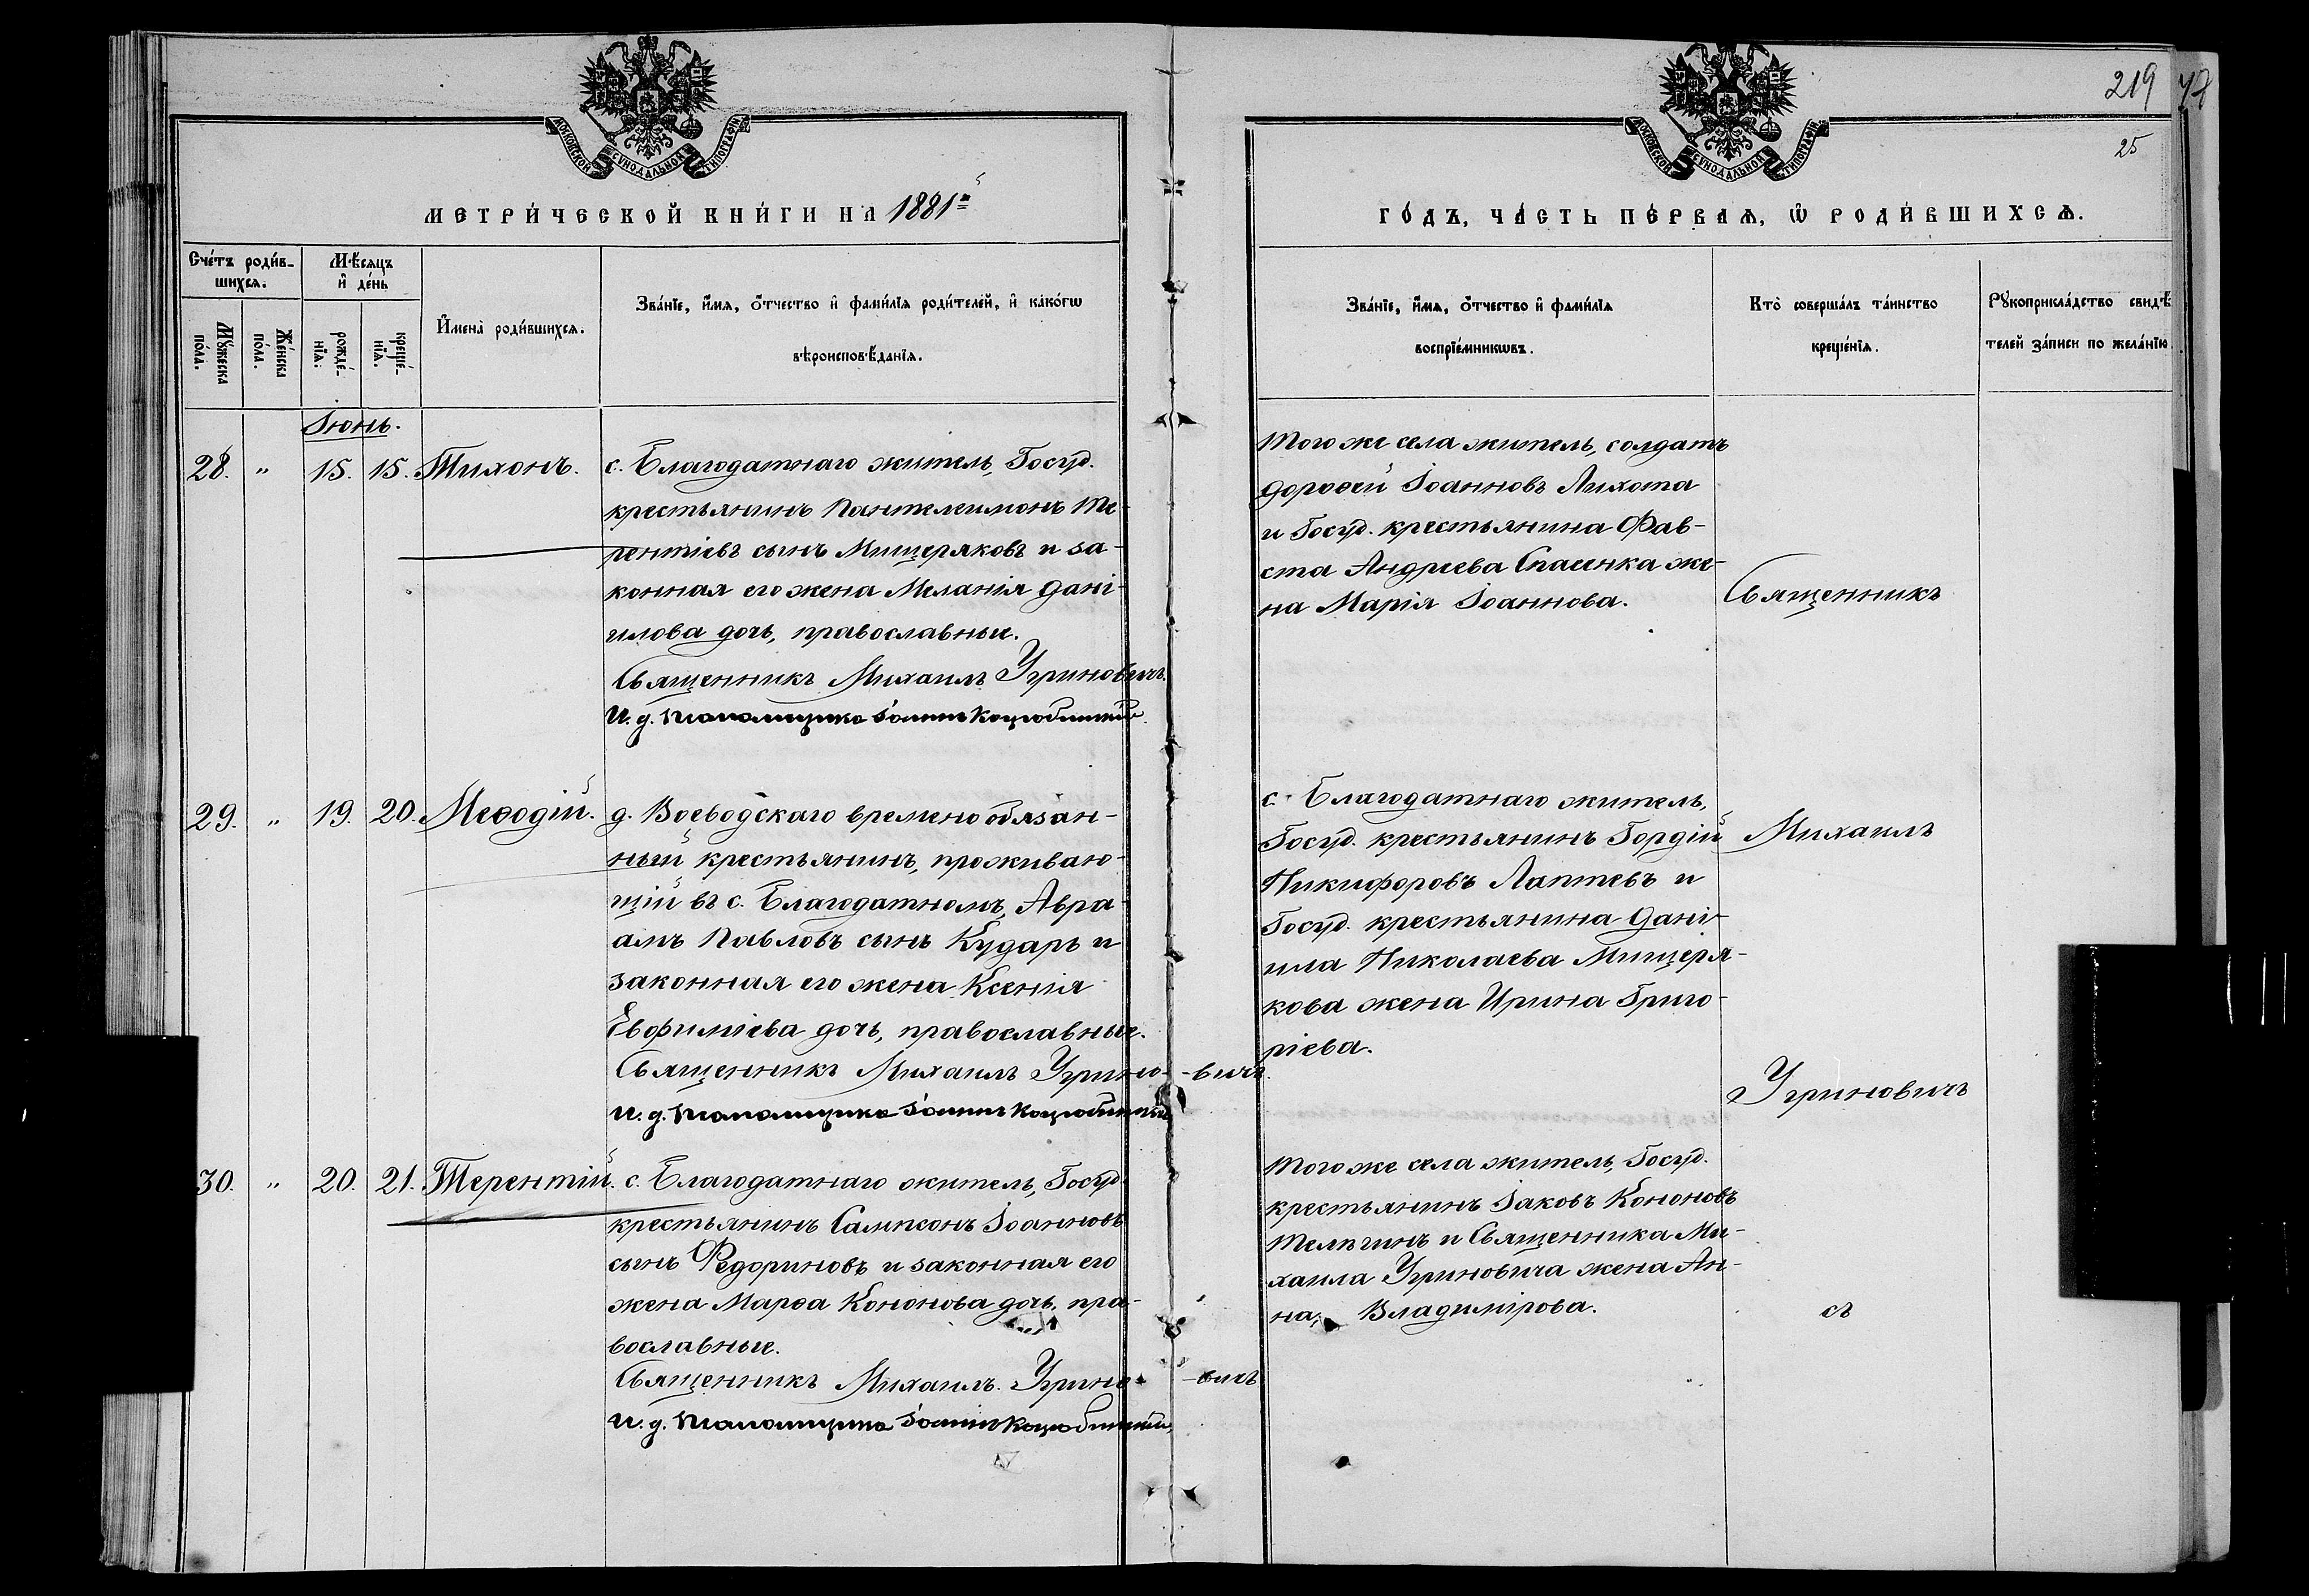 219
47
25
МОСКОВСКОЙ СУНОДАЛЬНОЙ ТИПОГРАФІИ
МОСКОВСКОЙ СУНОДАЛЬНОЙ ТИПОГРАФІИ
МЕТРИ́ЧЕСКОЙ КНИ́ГИ НА 1881й
ГО́ДЪ, ЧА́СТЬ ПЕ́РВАѦ, Ѽ РОДИ́ВШИХСѦ.
Сче́тъ роди́в-
шихсѧ.
Мѣ́сѧцъ
и҆ де́нь
Мꙋ́жеска
по́ла.
Же́нска
по́ла.
рожде́-
нїѧ.
креще́-
нїѧ.
И҆мена̀ роди́вшихсѧ.
Зва́нїе, и҆́мѧ, ѻ҆́тчество и҆ фами́лїѧ роди́телей, и҆ како́гѡ
вѣроисповѣ́данїѧ.
Зва́нїе, и҆́мѧ, ѻ҆́тчество и҆ фами́лїѧ
воспрїе́мникѡвъ.
Кто̀ соверша́лъ та́инство
креще́нїѧ.
Рꙋкоприкла́дство свидѣ́
телей за́писи по жела́нїю.
Іюнь.
28. " 15. 15. Тихонъ.
с. Благодатнаго житель, Госуд.
крестьянинъ Пантелеимонъ Те-
рентіевъ сынъ Мищеряковъ и за-
конная его жена Меланія Дані-
илова дочь, православные.
Священникъ Михаилъ Угриновичъ.
И. д. псаломщика Іоаннъ
Того же села житель, солдатъ
Дороѳей Іоанновъ Лихота
и Госуд. крестьянина Фав-
ста Андреева Спасенка же-
на Марія Іоаннова.
Священникъ
29. " 19. 20. Меѳодій.
д. Воеводскаго временно обязан-
ный крестьянинъ, проживаю-
щій въ с. Благодатномъ, Авра-
амъ Павловъ сынъ Кударь и
законная его жена Ксенія
Евфиміева дочь, православные.
Священникъ Михаилъ Угрино-вичъ.
И. д. псаломщика Іоаннъ
с. Благодатнаго житель,
Госуд. крестьянинъ Гордій
Никифоровъ Лаптевъ и
Госуд. крестьянина Дані-
ила Николаева Мищеря-
кова жена Ирина Григо-
ріева.
Михаилъ
Угриновичъ
30. " 20. 21. Терентій.
с. Благодатнаго житель, Госуд.
крестьянинъ Сампсонъ Іоанновъ
сынъ Федориновъ и законная его
жена Марѳа Кононова дочь, пра-
вославные.
Священникъ Михаилъ Угрино-вичъ
И. д. псаломщика Іоаннъ
Того же села житель, Госуд.
крестьянинъ Іаковъ Кононовъ
Телѣгинъ и Священника Ми-
хаила Угриновича жена Ан-
на, Владимірова.
съ